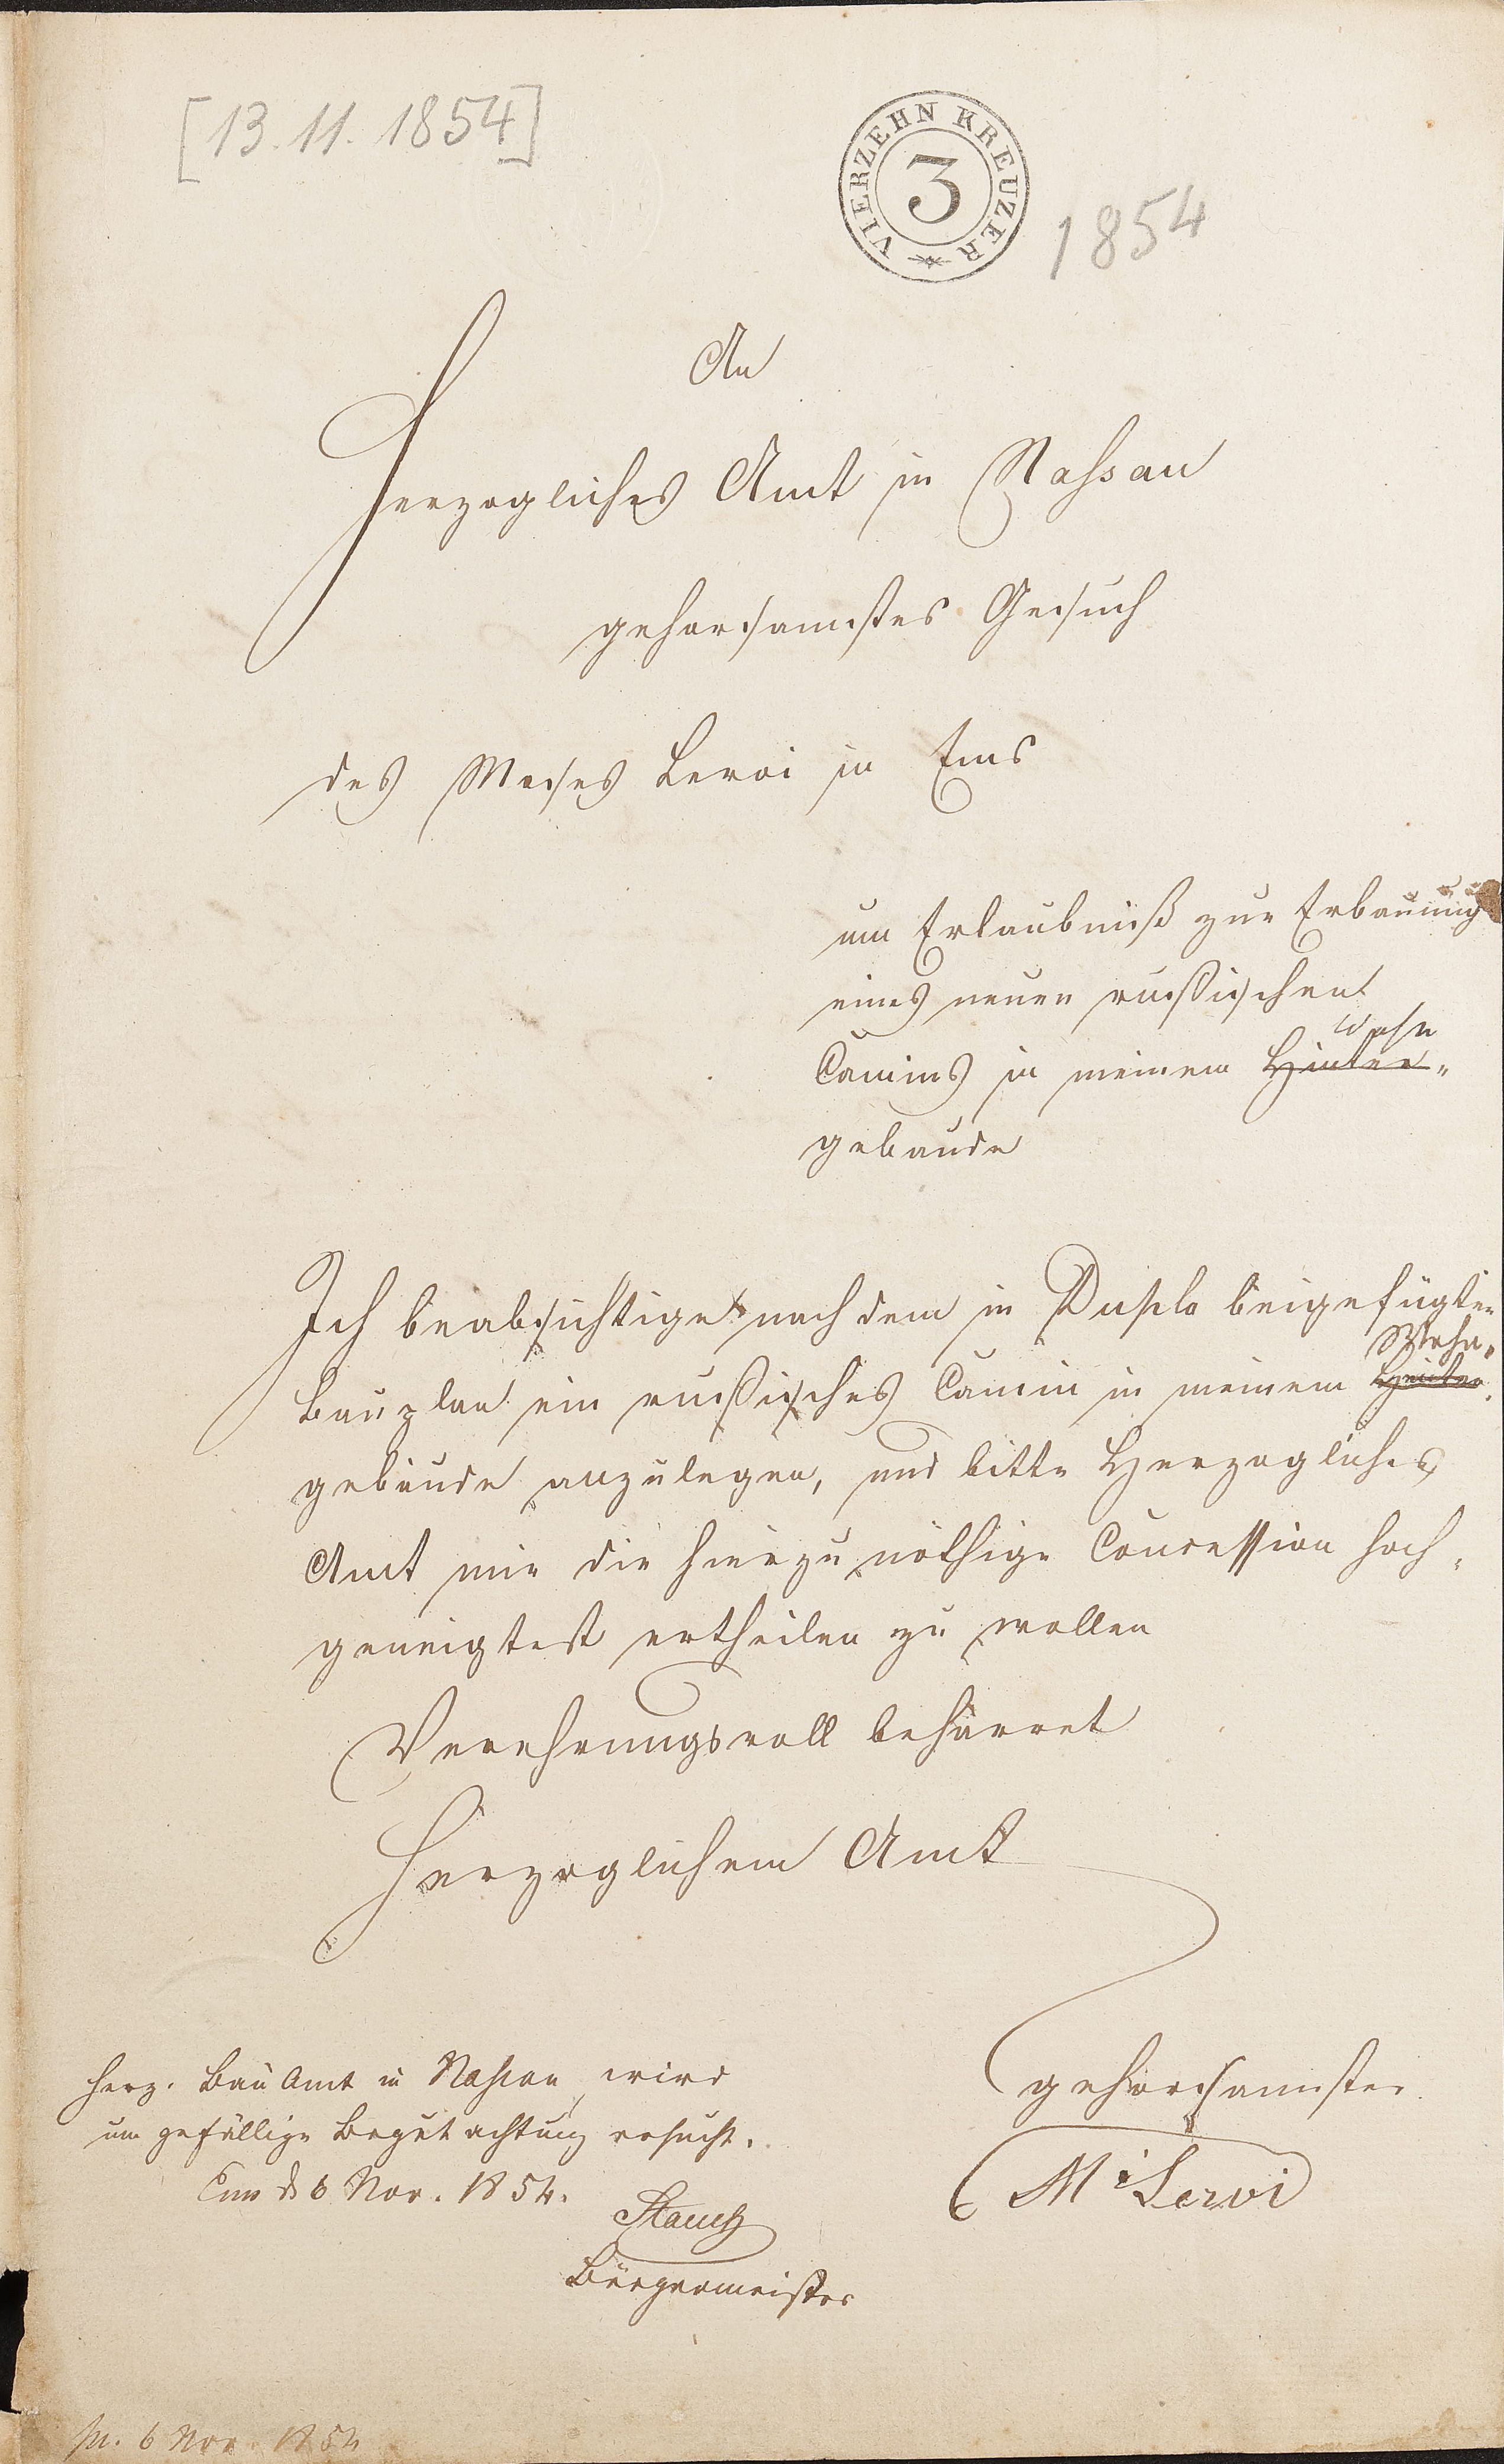 [13.11.1854]
VIERZEHN KREUZER
3
1854
An
Herzogliches Amt in Nassau
gehorsamstes Gesuch
des Moses Leroi in Ems
um Erlaubniß zur Erbauung
eines neuen rußischen
wohn
Camins in meinem Hinter-
gebäude
Ich beabsichtige nach dem in Duplo beigefügten
Wohn-
Bauplan ein rußisches Camin in meinem Hinter-
gebäude anzulegen, und bitte Herzogliches
Amt mir die hierzu nöthige Concession hoch-
geneigtest ertheilen zu wollen
Verehrungsvoll beharret
Herzoglichem Amt
gehorsamster
M Leroi
Herz. Bau Amt in Nassau wird
um gefällige Begutachtung ersucht.
Ems d 6 Nov. 1854.
Bürgermeister
pr. 6 Nov. 1854